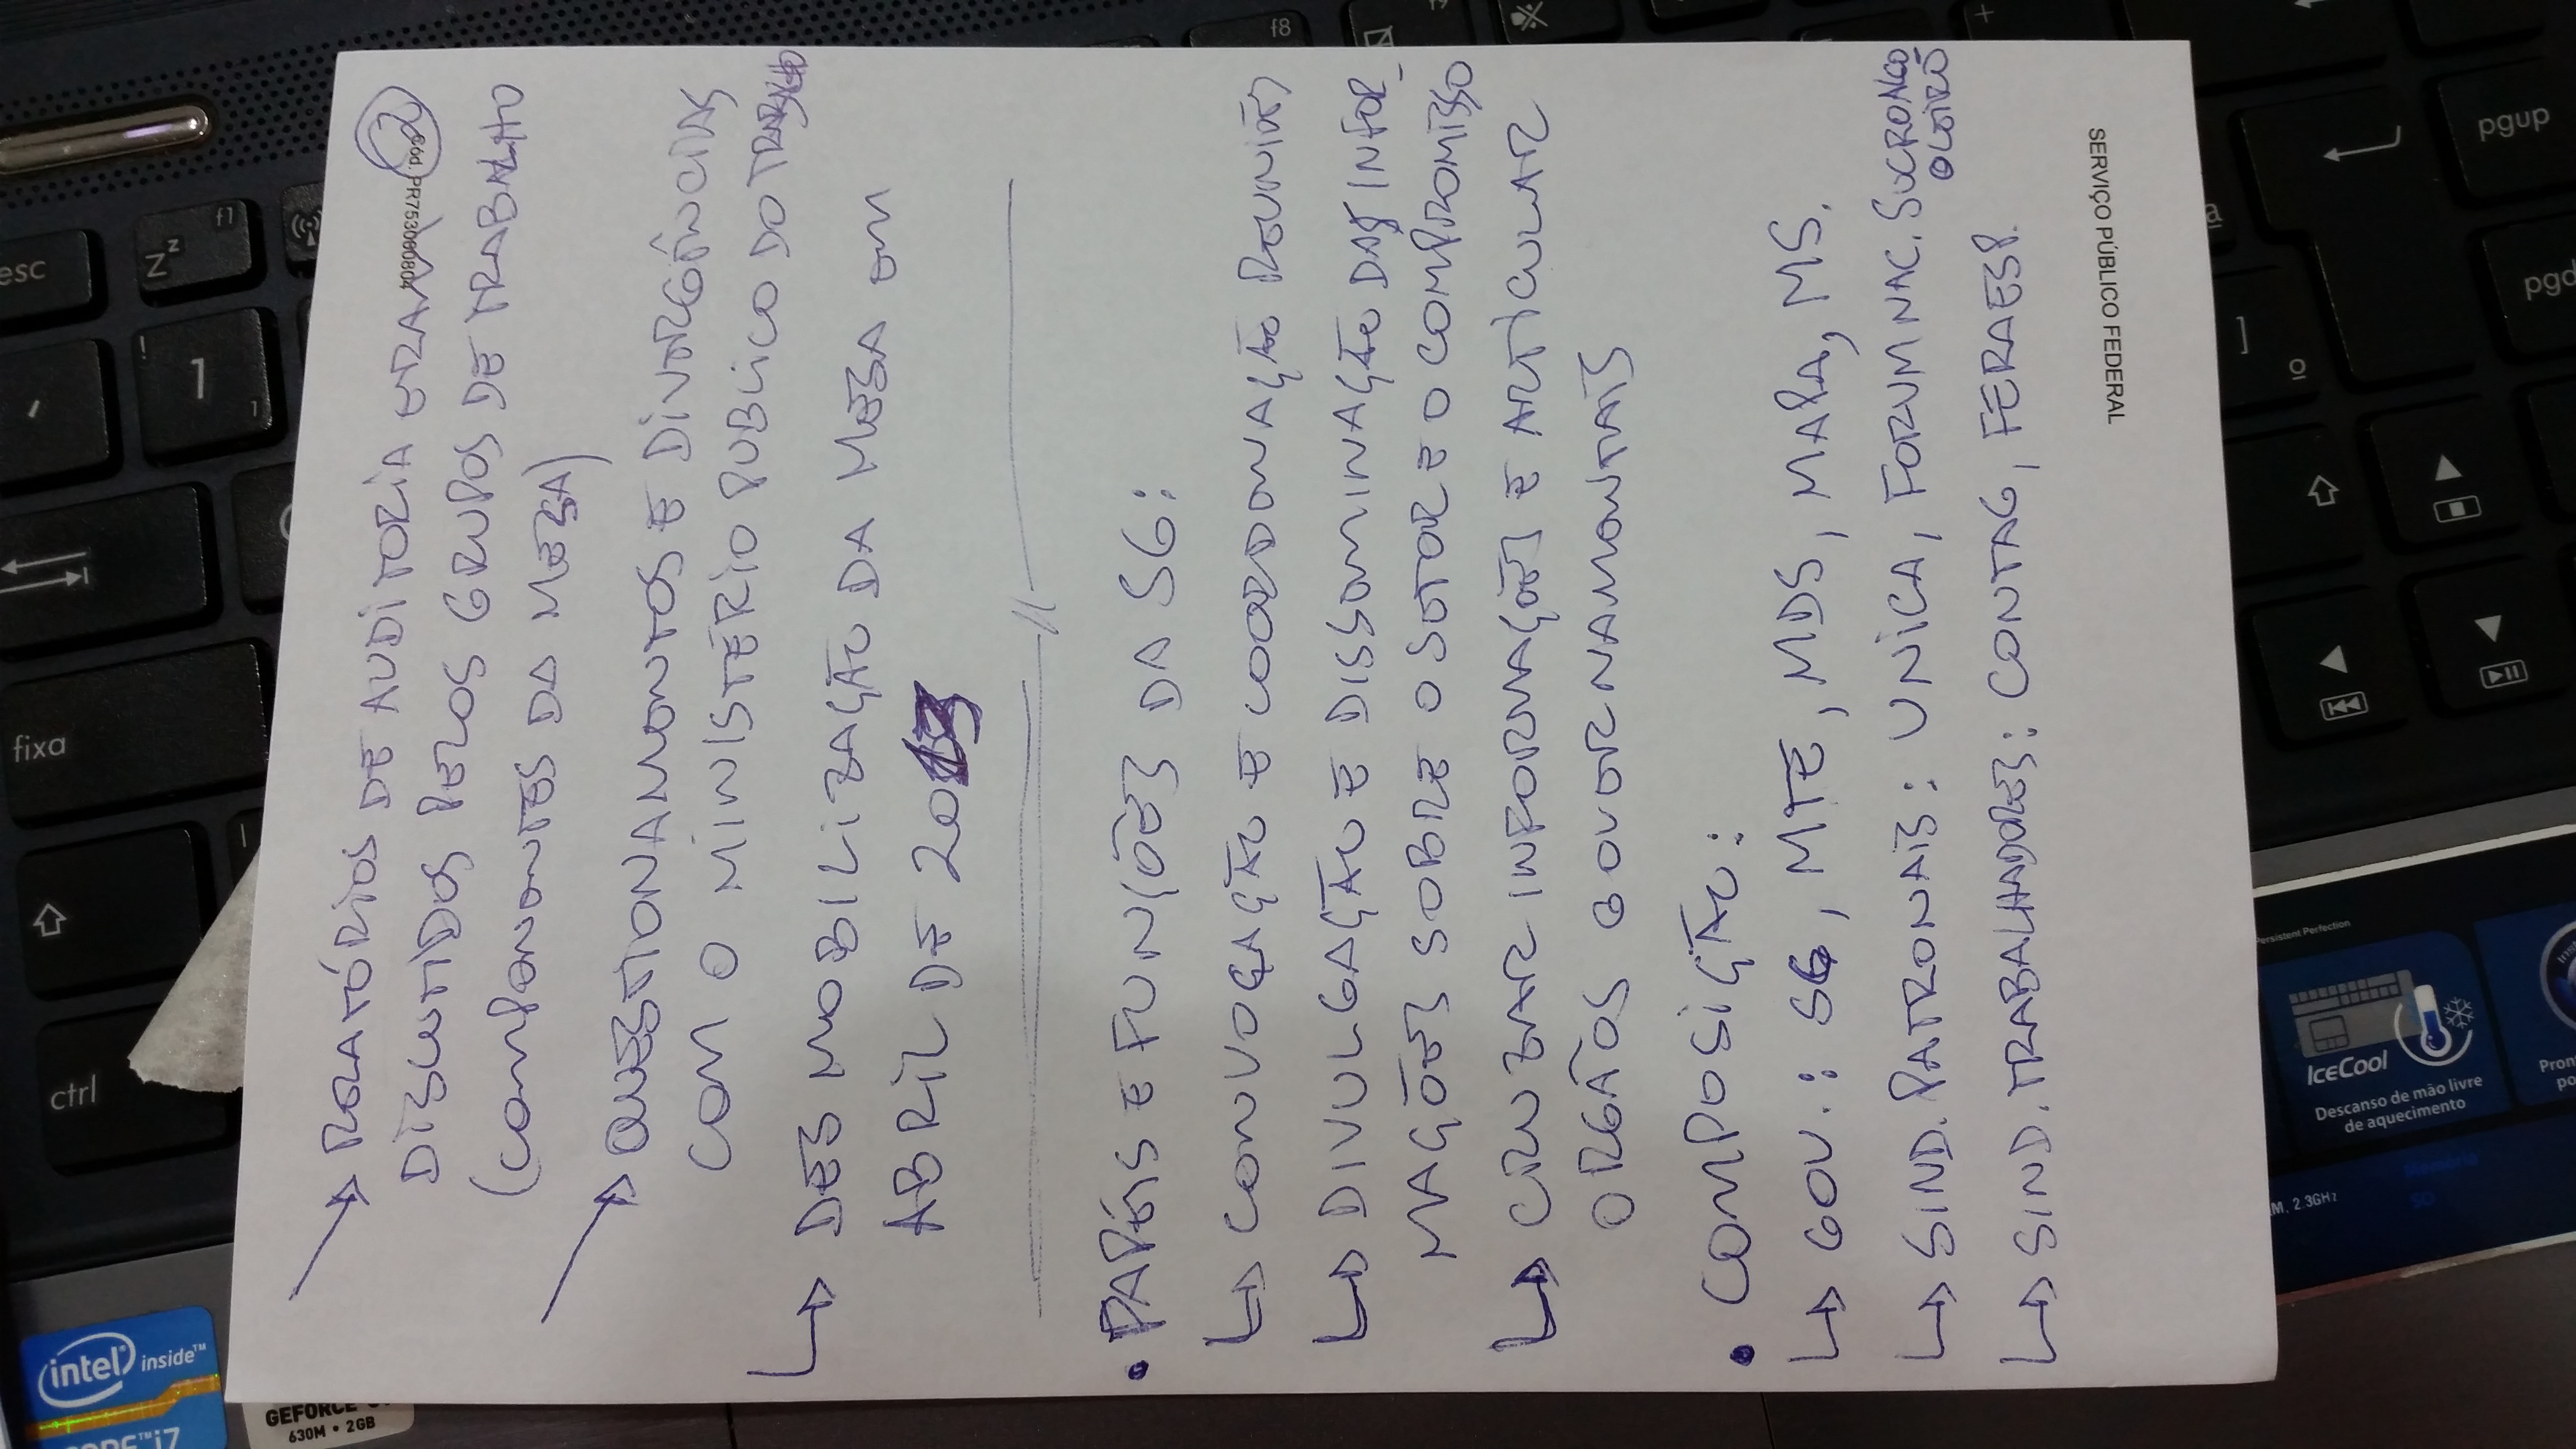 2
Cód. PR75300080804
→ RELATÓRIOS DE AUDITORIA ERAM
DISCUTIDOS PELOS GRUPOS DE TRABALHO
(COMPONENTES DA MESA)
→ QUESTIONAMENTOS E DIVERGÊNCIAS
COM O MINISTÉRIO PÚBLICO DO TRABALHO
↳ DESMOBILIZAÇÃO DA MESA EM
ABRIL DE 2013
//
• PAPÉIS E FUNÇÕES DA SG:
↳ CONVOCAÇÃO E COORDENAÇÃO REUNIÕES
↳ DIVULGAÇÃO E DISSEMINAÇÃO DAS INFOR-
MAÇÕES SOBRE O SETOR E O COMPROMISSO
↳ CRUZAR INFORMAÇÕES E ARTICULAR
ORGÃOS GOVERNAMENTAIS
• COMPOSIÇÃO:
↳ GOV.: SG, MTE, MDS, MAPA, MS.
↳ SIND. PATRONAIS: UNICA, FORUM NAC. SUCRONCO
ALEIRO
↳ SIND. TRABALHADORES: CONTAG, FERAESP.
SERVIÇO PÚBLICO FEDERAL
esc
f1
f8
1
!
fixa
ctrl
pgup
pgd
intel inside™
CORE™ i7
GEFORCE
630M • 2GB
Persistent Perfection
IceCool
Descanso de mão livre
de aquecimento
2.3GHz